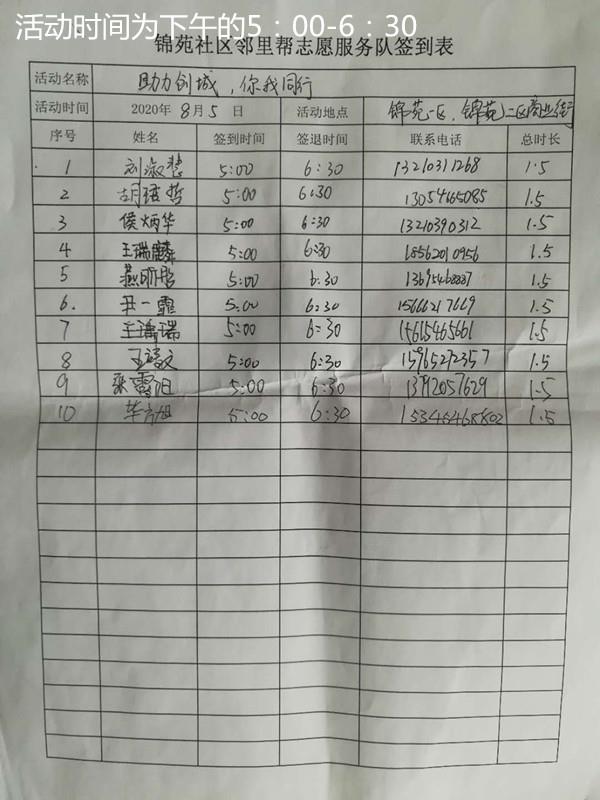 活动时间为下午的5：00-6：30
锦苑社区邻里帮志愿服务队签到表
活动名称 助力创城，你我同行
活动时间 2020年 8月5日 活动地点 锦苑一区，锦苑二区商业街
序号 姓名 签到时间 签退时间 联系电话 总时长
1 刘淑慧 5:00 6:30 13210311268 1.5
2 胡 哲 5:00 6:30 13054665085 1.5
3 侯炳华 5:00 6:30 13210390312 1.5
4 王瑞麟 5:00 6:30 18562010956 1.5
5 燕 5:00 6:30 13695468887 1.5
6. 尹一霏 5:00 6:30 15666217669 1.5
7 王 瑞 5:00 6:30 15615465661 1.5
8 王 文 5:00 6:30 15965292357 1.5
9 5:00 6:30 13792057629 1.5
10 5:00 6:30 1.5